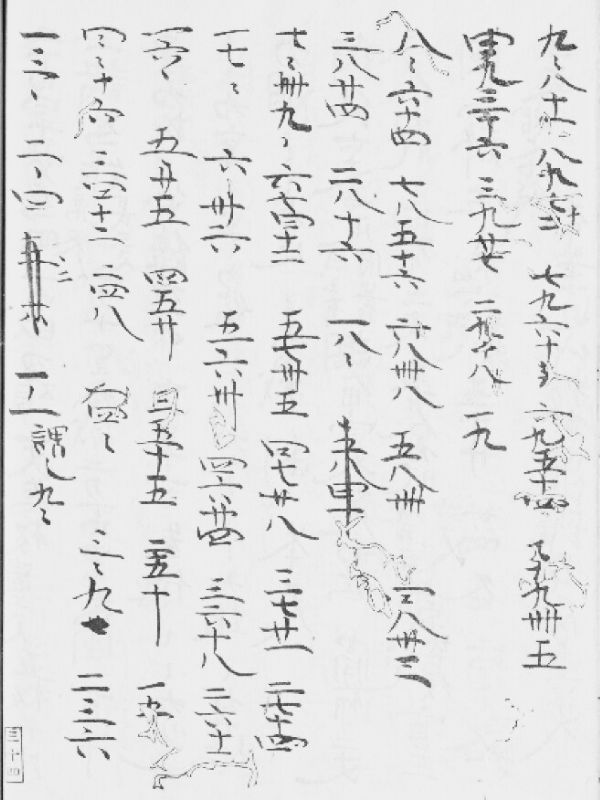 九々八十一 八九七十二 七九六十三 六九五十四 五九卌五
四九三十六 三九廿七 二九十八 一九
八々六十四 七八五十六 六八卌八 五八卌 四八卅二
三八廿四 二八十六 一八々
七々卌九 六七四十二 五七卅五 四七廿八 三七廿一 二七十四
一七々 六々卅六 五六卅 四六廿四 三六十八 二六十二
一六々 五々廿五 四五廿 三五十五 二五十 一五
四々十六 三四十二 二四八 一四々 三々九 二三六
一三々 二々四 一々一 謂之九々
三十四